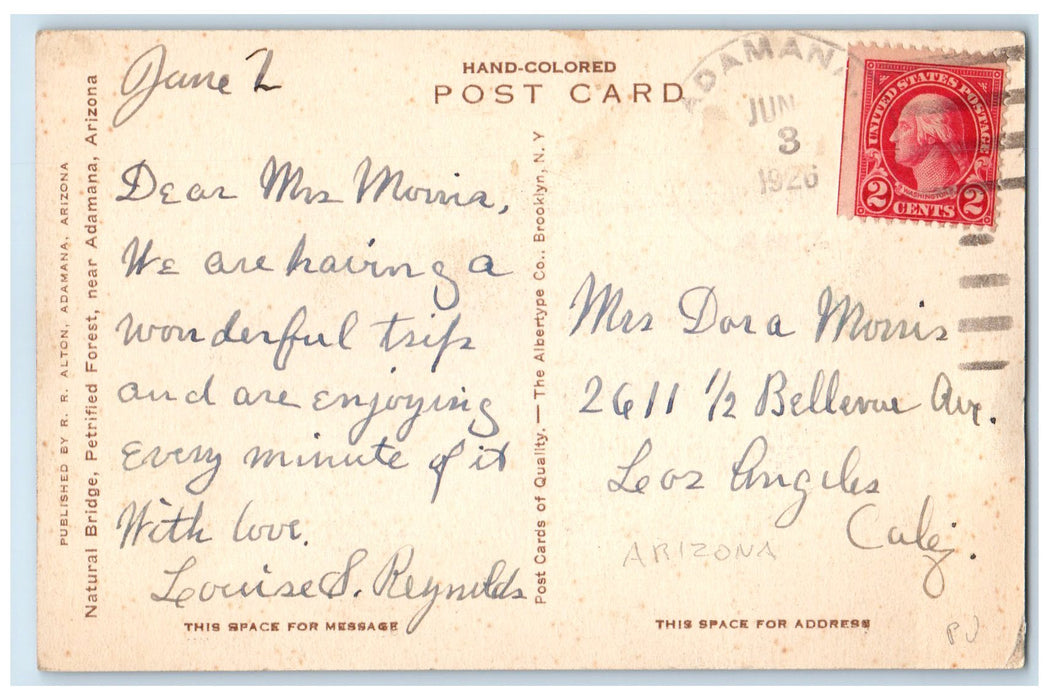 PUBLISHED BY R. R. ALTON, ADAMANA, ARIZONA
Natural Bridge, Petrified Forest, near Adamana, Arizona
June 2
Dear Mrs Morris,
We are having a
wonderful trip
and are enjoying
every minute of it
With love.
Louise S. Reynolds
THIS SPACE FOR MESSAGE
HAND-COLORED
POST CARD
Post Cards of Quality. — The Albertype Co., Brooklyn, N. Y
ADAMANA
JUN
3
1926
UNITED STATES POSTAGE
WASHINGTON
2 CENTS 2
Mrs Dora Morris
2611 1/2 Bellevue Ave.
Los Angeles
Calif.
ARIZONA
THIS SPACE FOR ADDRESS